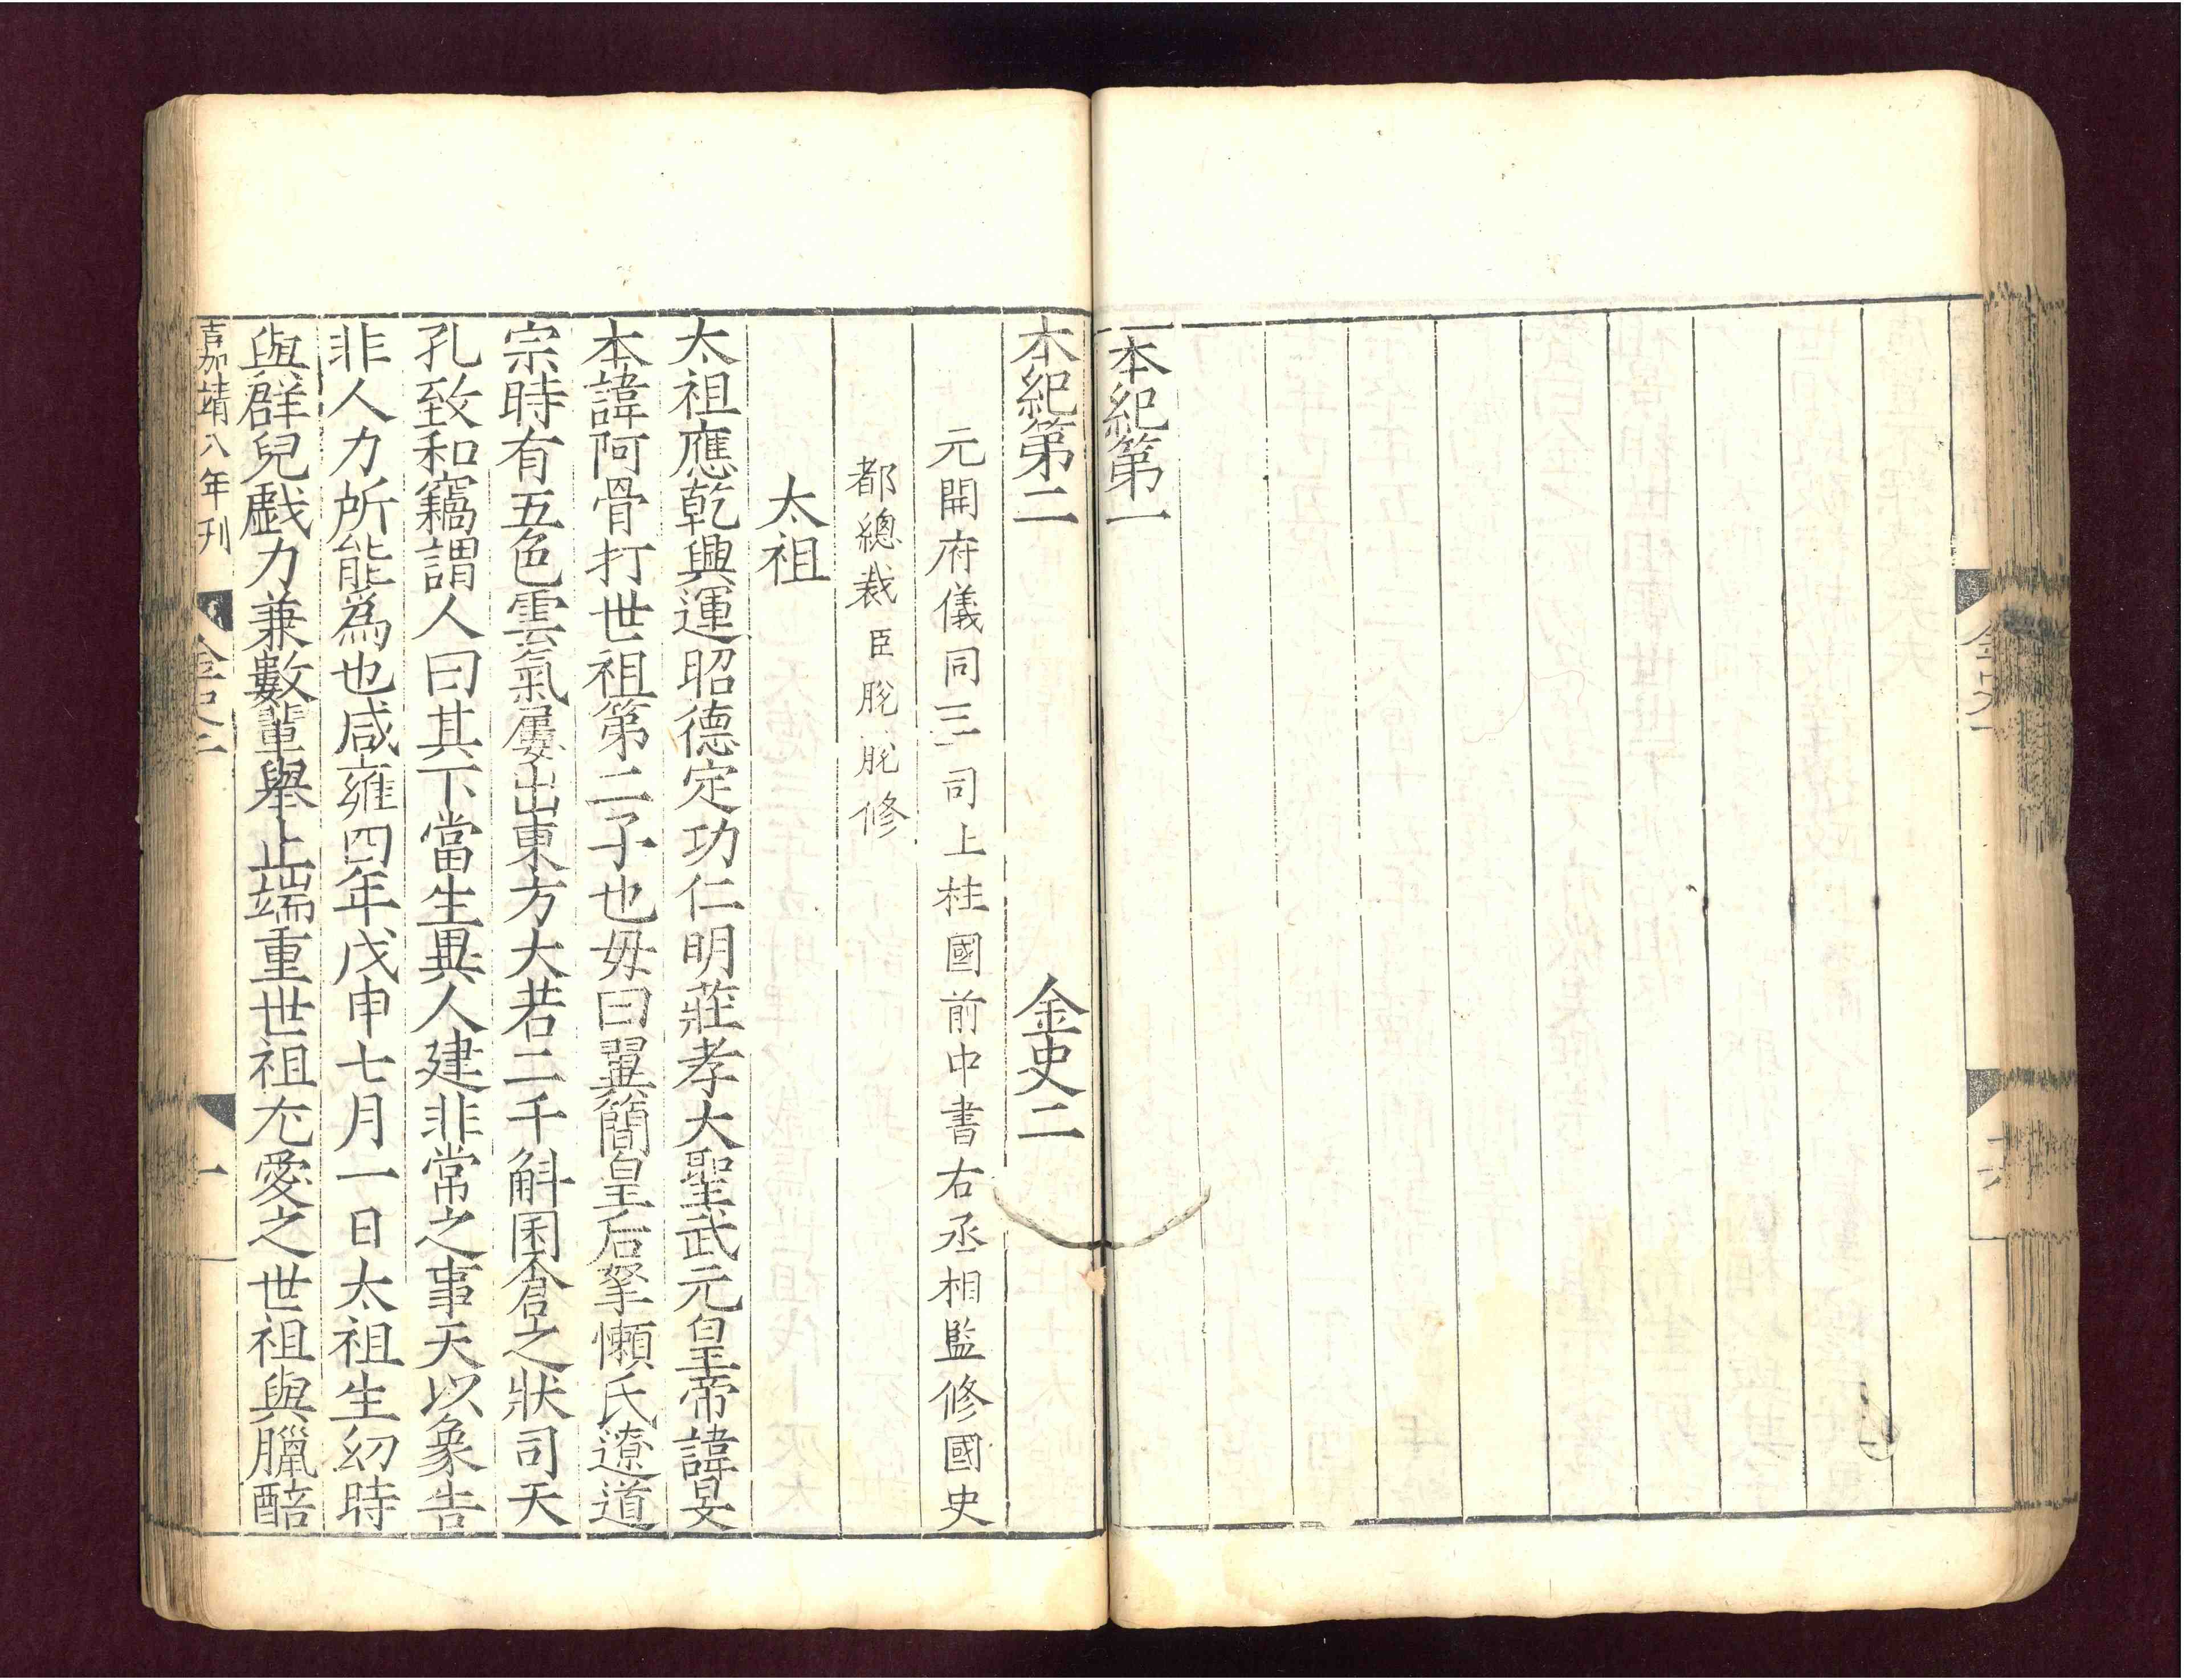 本紀第一
本紀第二　金史二
元開府儀同三司上柱國前中書右丞相監修國史
都總裁臣脫脫修
太祖
太祖應乾興運昭德定功仁明莊孝大聖武元皇帝諱旻
本諱阿骨打世祖第二子也毋曰翼簡皇后拏懶氏遼道
宗時有五色雲氣屢出東方大若二千斛囷倉之狀司天
孔致和竊謂人曰其下當生異人建非常之事天以象告
非人力所能爲也咸雍四年戊申七月一日太祖生幼時
與群兒戲力兼數輩舉止端重世祖尤愛之世祖與臘醅
嘉靖八年刊
金史二
一